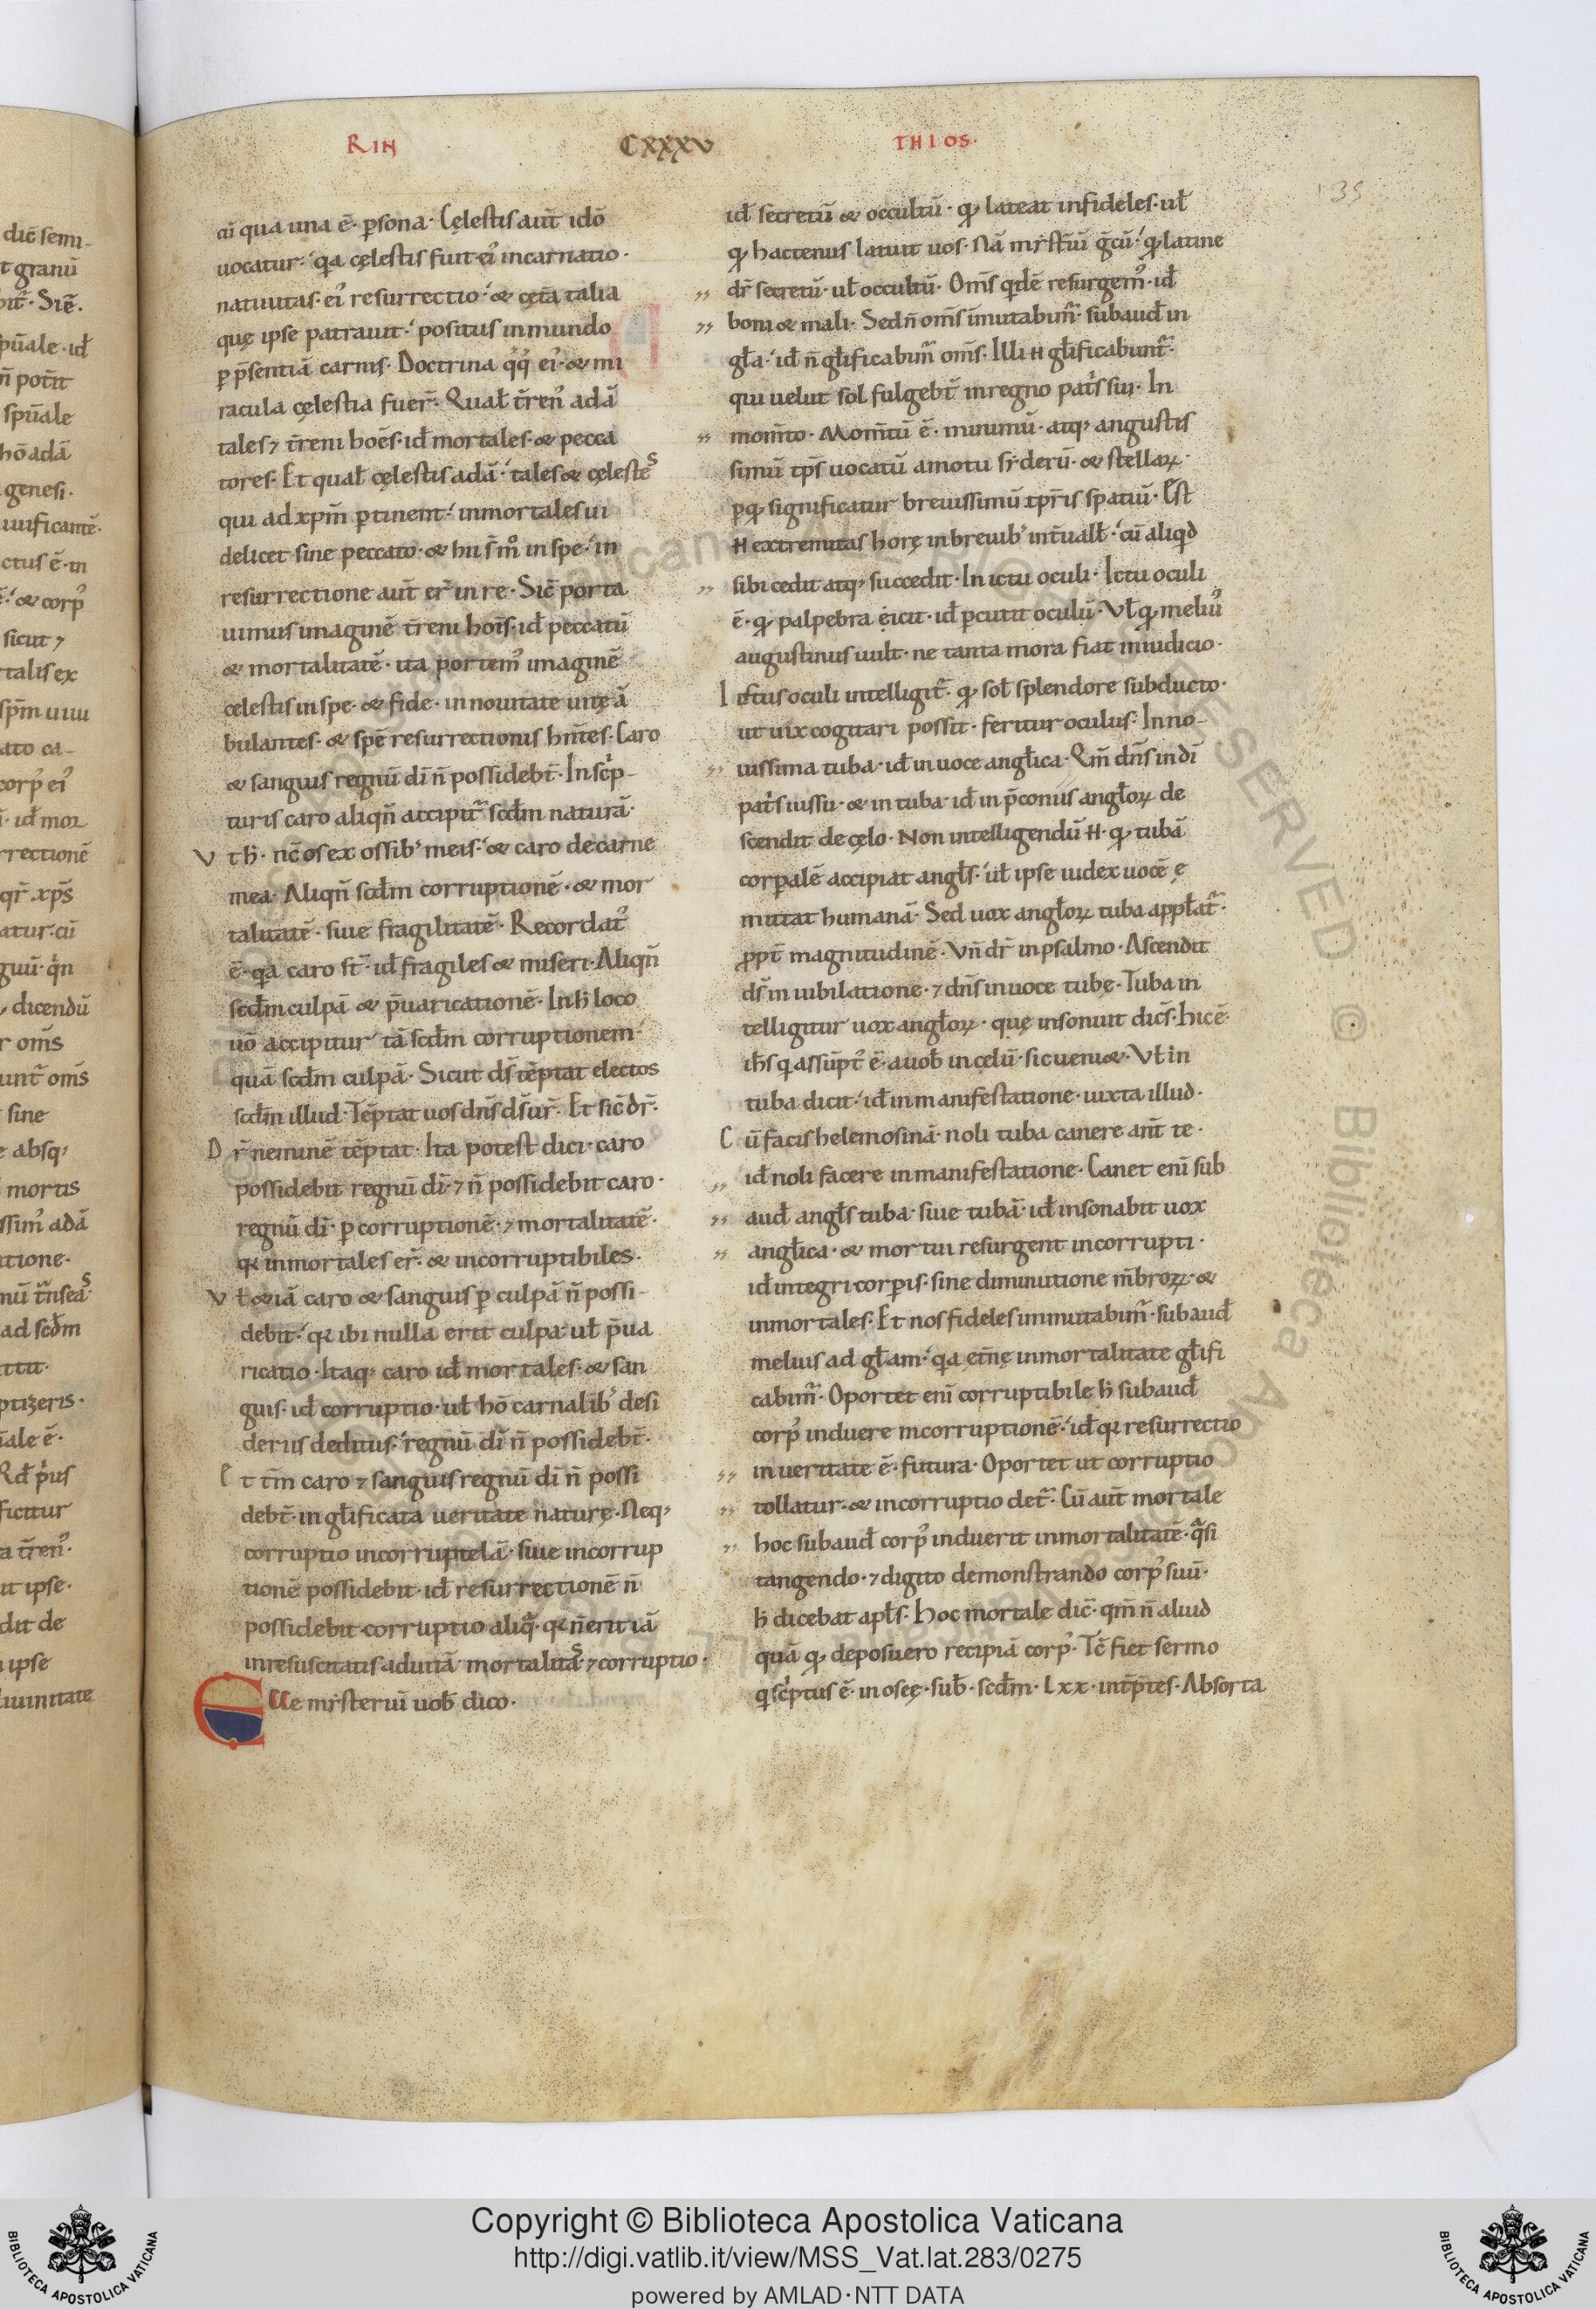 RIN CXXXV THIOS.
135
aū qua una ē. psona. Cęlestis aut̄ idō
uocatur. qa cęlestis fuit ei᾽ incarnatio.
natiuitas. ei᾽ resurrectio. & cęt̄a talia
quę ipse patrauit. positus in mundo
p p̄sentiā carnis. Doctrina qq ei᾽. & mi
racula cęlestia fuer̄. Qual̄ t̄ren᾽ adā
tales ⁊ t̄reni hoēs. id̄ mortales. & pecca
tores. Et qual̄ cęlestis adā. tales & cęlestes
qui ad xp̄m ptinent. inmortales ui
delicet sine peccato. & hii s̄mo in spe. in
resurrectione aut̄ er̄ in re. Sic̄ porta
uimus imaginē t̄reni hoīs. id̄ peccatū
& mortalitatē. ita portem᾽ imaginē
celestis in spe. & fide. in nouitate uitę ā
bulantes. & spē resurrectionis hn̄tes. Caro
& sanguis regnū dī n̄ possidebt̄. In scp̄-
turis caro aliqn̄ accipit̄ scd̄m naturā.
V t h̄. nc̄ os ex ossib᾽ meis. & caro de carne
mea. Aliqn̄ scd̄m corruptionē. & mor
talitatē. siue fragilitatē. Recordat᾽
ē. qa caro st̄. id̄ fragiles & miseri. Aliqn̄
scd̄m culpā & p̄uaricationē. In h̄ loco
uō accipitur tā scd̄m corruptionem
quā scd̄m culpā. Sicut ds̄ tēptat electos
scd̄m illud. Tēptat uos dn̄s ds̄ ur̄. Et sic̄ dr̄.
D s̄ neminē tēptat. Ita potest dici. caro
possidebit regnū dī. ⁊ n̄ possidebit caro.
regnū dī. p corruptionē. ⁊ mortalitatē.
qꝛ inmortales er̄. & incorruptibiles.
V l̄ &iā caro & sanguis p culpā n̄ possi-
debit. qꝛ ibi nulla erit culpa. ul̄ p̄ua
ricatio. Itaq; caro id̄ mortales. & san
guis. id̄ corruptio. ul̄ hō carnalib᾽ desi
deriis deditus. regnū dī n̄ possidebt̄.
E t tm̄ caro ⁊ sanguis regnū dī n̄ possi
debt̄. in gl̄ificata ueritate naturę. Neq;
corruptio incorruptelā. siue incorrup
tionē possidebit. id̄ resurrectionē n̄
possidebit corruptio aliq. qꝛ n̄ erit iā
in resuscitatis aduitā mortalitas ⁊ corruptio.
Ecce misteriū uob̄ dico.
id̄ secretū & occultū. qꝫ lateat infideles. ul̄
qꝫ hactenus latuit uos. Nā mist̄iū ḡcū. qꝫ latine
dr̄ secretū. ul̄ occultū. Oms̄ qdē resurgem᾽. id̄
boni & mali. Sed n̄ oms̄ īmutabim̄. subaud̄ in
gl̄a. id̄ n̄ gl̄ificabim̄ oms̄. Illi H gl̄ificabunt̄.
qui uelut sol fulgebt̄ in regno pat̄s sui. In
mom̄to. Mom̄tū ē. minimū. atq; angustis
simū tps̄ uocatū a motu siderū. & stellaꝝ.
p qꝫ significatur breuissimū tpr̄is spatiū. Est
H extremitas horę in breuib᾽ int̄uall̄. cū aliqd
sibi cedit atq; succedit. In ictu oculi. Ictu oculi
ē. qꝫ palpebra eicit. id̄ pcutit oculū. Vl̄ qꝫ meli᾽
augustinus uult. ne tanta mora fiat in iudicio.
I ctus oculi intelligit̄. qꝫ sol̄ splendore subducto.
ut uix cogitari possit. feritur oculus. In no-
uissima tuba. id̄ in uoce angl̄ica. Qm̄ dn̄s in dī
pat̄s iussu. & in tuba. id̄ in p̄coniis angl̄oꝝ de
scendit de cęlo. Non intelligendū H. qꝫ tubā
corpalē accipiat angl̄s. ul̄ ipse iudex uocē ę
mittat humanā. Sed uox angl̄oꝝ tuba appl̄at̄.
ppt̄ magnitudinē. Vn̄ dr̄ in psalmo. Ascendit
ds̄ in iubilatione. ⁊ dn̄s in uoce tubę. Tuba in
telligitur uox angl̄oꝝ. quę insonuit dics̄. hic ē.
ih̄s q assūpt᾽ ē. a uob̄ in cęlū. sic ueni&. Vl̄ in
tuba dicit. id̄ in manifestatione. iuxta illud.
C ū facis helemosinā. noli tuba canere ant̄ te.
id̄ noli facere in manifestatione. Canet enī sub
aud̄ angl̄s tuba. siue tubā. id̄ insonabit uox
angl̄ica. & mortui resurgent incorrupti.
id̄ integri corpis. sine diminutione m̄broꝝ. &
inmortales. Et nos fideles inmutabim̄. subaud̄
melius ad gl̄am. qa et̄nę inmortalitate gl̄ifi
cabim̄. Oportet enī corruptibile h̄ subaud̄
corp᾽ induere incorruptionē. id̄ qꝛ resurrectio
in ueritate ē. futura. Oportet ut corruptio
tollatur. & incorruptio det̄. Cū aut̄ mortale
hoc subaud̄ corp᾽ induerit inmortalitatē. qsi
tangendo. ⁊ digito demonstrando corp᾽ suū.
h̄ dicebat apl̄s. Hoc mortale dic̄. qm̄ n̄ aliud
quā qꝫ deposuero recipiā corp᾽. Tc̄ fiet sermo
q sc̄ptus ē. in oseę. sub̄. scd̄m. Lxx. int̄pt̄es. Absorta
dic̄ semi-
t granū
bit̄. Sic̄.
pūale. id̄
n̄ pot̄it
spūale
hō adā
genesi.
uiuificantē.
ctus ē. in
& corp᾽
sicut ⁊
rtalis ex
sp̄m uiu
ato ca-
corp᾽ ei᾽
id̄ mor
rrectionē
qr̄. xp̄s
atur. cū
guū. qn
dicendū
r oms̄
unt̄ oms̄
sine
e absq;
mortis
ssim᾽ adā
tione.
ad scd̄m
ptizeris.
ūale ē.
ficitur
a t̄ren᾽.
it ipse.
dit de
ipse
iuinitate
Copyright © Biblioteca Apostolica Vaticana
http://digi.vatlib.it/view/MSS_Vat.lat.283/0275
powered by AMLAD·NTT DATA
BIBLIOTECA APOSTOLICA VATICANA
BIBLIOTECA APOSTOLICA VATICANA